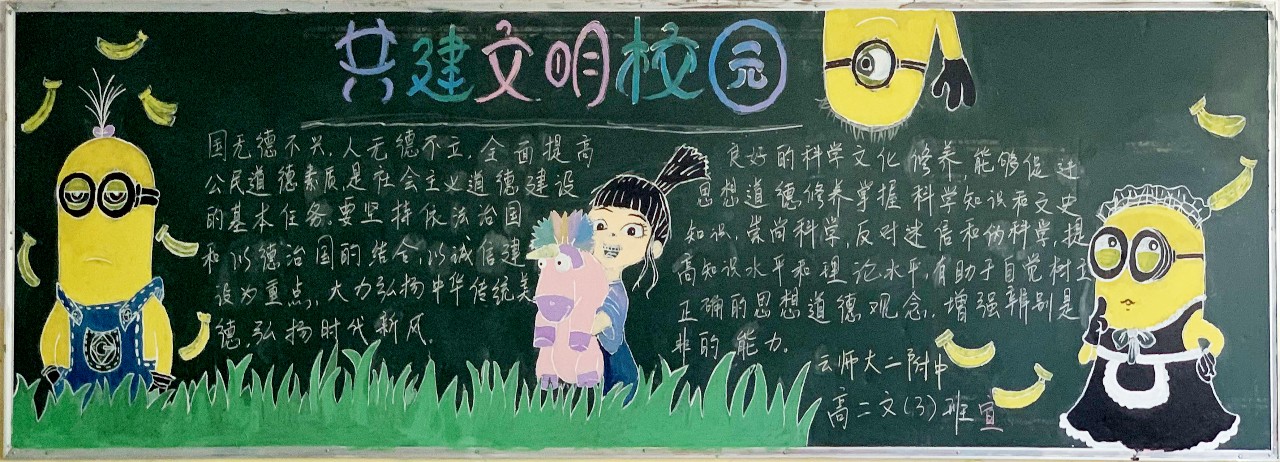 共建文明校园
国无德不兴，人无德不立，全面提高
公民道德素质，是社会主义道德建设
的基本任务。要坚持依法治国
和以德治国的结合，以诚信建
设为重点，大力弘扬中华传统美
德，弘扬时代新风。
良好的科学文化修养，能够促进
思想道德修养掌握科学知识和文史
知识、崇尚科学，反对迷信和伪科学提
高知识水平和理论水平，有助于自觉树立
正确的思想道德观念，增强辨别是
非的能力。
云师大二附中
高二文(3)班宣